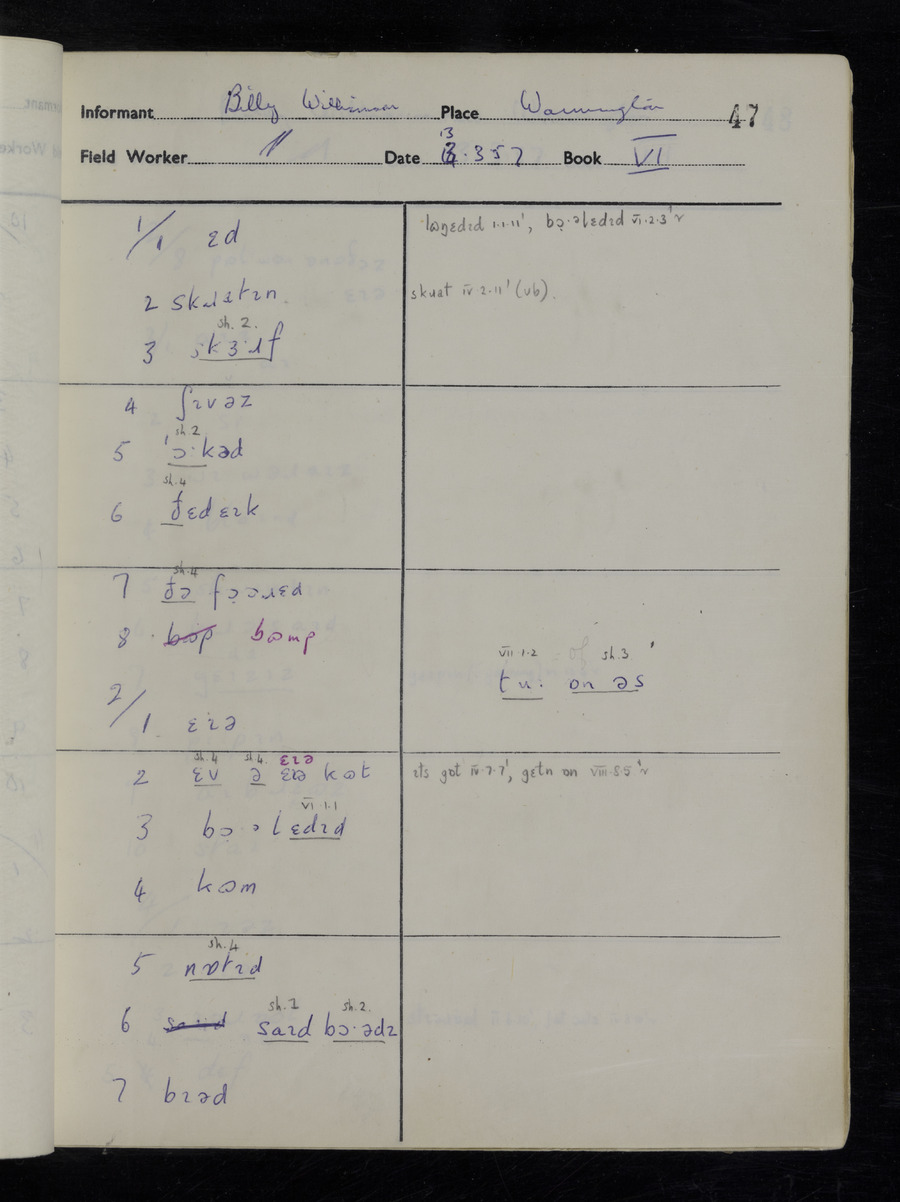 Informant Billy Williamson Place Warmington 47
Field Worker Date 13.3.57 Book VI
1/1 ɛd
lɒŋɛdɪd 1.1.11', bɔ̣·əlɛdɪd VI.2.3'
2
skwat IV 2.11' (vb).
sh. 2.
3
4 ʃɪvəz
sh. 2
5 'ɔ·kəd
sh. 4
6 ðɛdɛɪk
sh. 4
7 ðə
8 bɷmp
VII.1.2 sh.3
tʊ· ɒn əs
2/1 ɛɪə
sh. 4 sh. 4 ɛɪə
2 ɛv ə kɷt
ɪts gɒt IV.7.7', gɛtn ɒn VIII.8.5'
VI 1.1
3 bɔ̣·əlɛdɪd
4 kɷm
sh. 4
5 nɒtɪd
sh. 1 sh. 2.
6 saɪd bɔ·ədz
7 bɪəd